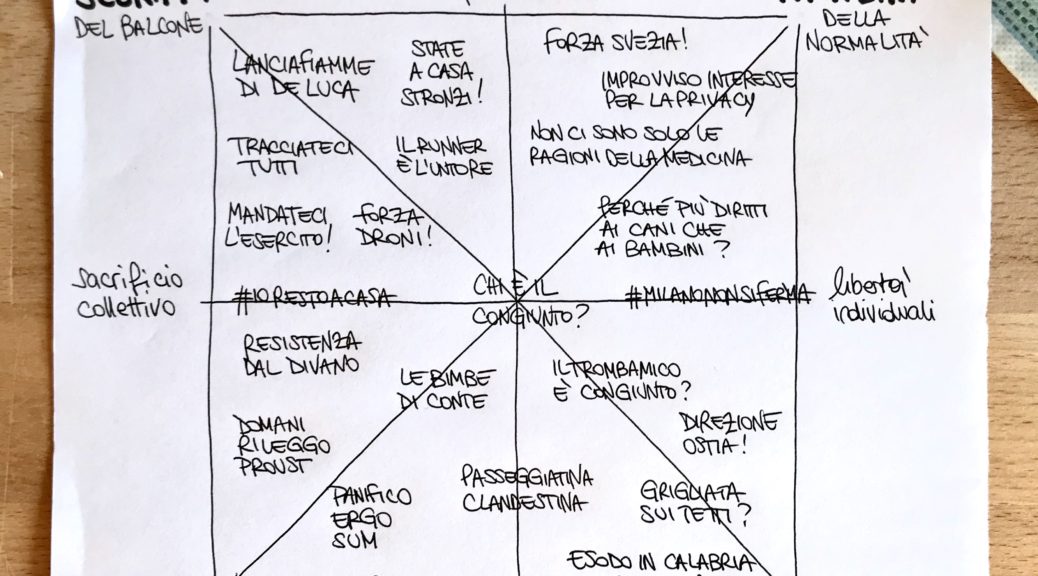 DEL BALCONE
DELLA
NORMALITA'
LANCIAFIAMME
DI DE LUCA
STATE
A CASA
STRONZI!
FORZA SVEZIA!
IMPROVVISO INTERESSE
PER LA PRIVACY
TRACCIATECI
TUTTI
IL RUNNER
È L'UNTORE
NON CI SONO SOLO LE
RAGIONI DELLA MEDICINA
MANDATECI
L'ESERCITO!
FORZA
DRONI!
PERCHÉ PIÙ DIRITTI
AI CANI CHE
AI BAMBINI?
sacrificio
collettivo
#IORESTOACASA
CHI È IL
CONGIUNTO?
#MILANONONSIFERMA
libertà
individuali
RESISTENZA
DAL DIVANO
LE BIMBE
DI CONTE
IL TROMBAMICO
È CONGIUNTO?
DOMANI
RILEGGO
PROUST
DIREZIONE
OSTIA!
PANIFICO
ERGO
SUM
PASSEGGIATINA
CLANDESTINA
GRIGLIATA
SUI TETTI?
ESODO IN CALABRIA